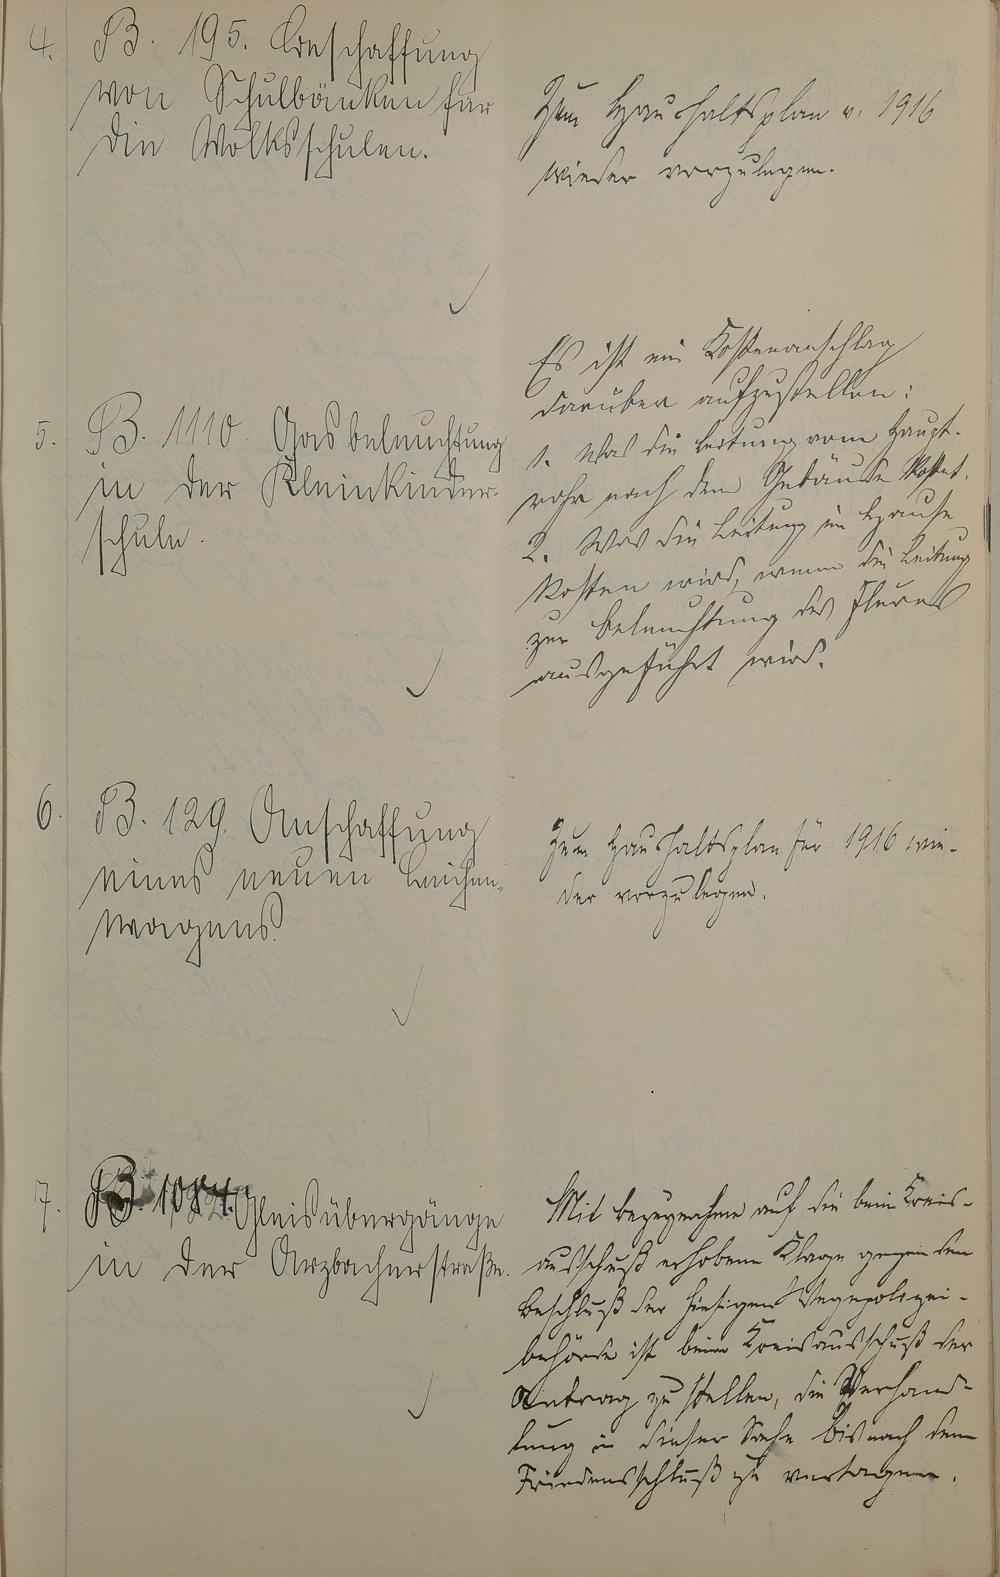 4. B. 195. Beschaffung
von Schulbänken für
die Volksschulen.
Zum Haushaltsplan v. 1916
wieder vorzulegen.
5. B. 1110. Gasbeleuchtung
in der Kleinkinder-
schule.
Es ist ein Kostenanschlag
darüber aufzustellen:
1. Was die Leitung vom Haupt-
rohr nach dem Gebäude kostet.
2. Was die Leitung im Hause
kosten wird, wenn die Leitung
zur Beleuchtung des Flures
ausgeführt wird.
6. B. 129. Anschaffung
eines neuen Leichen-
wagens.
Zum Haushaltsplan für 1916 wie-
der vorzulegen.
7. B. 1084. Gleisübergänge
in der Arzbacherstraße.
Mit Bezugnahme auf die beim Kreis-
ausschuß erhobene Klage gegen den
Beschluß der hiesigen Wegepolizei-
behörde ist beim Kreisausschuß der
Antrag zu stellen, die Verhand-
lung in dieser Sache bis nach dem
Friedensschluß zu vertagen.